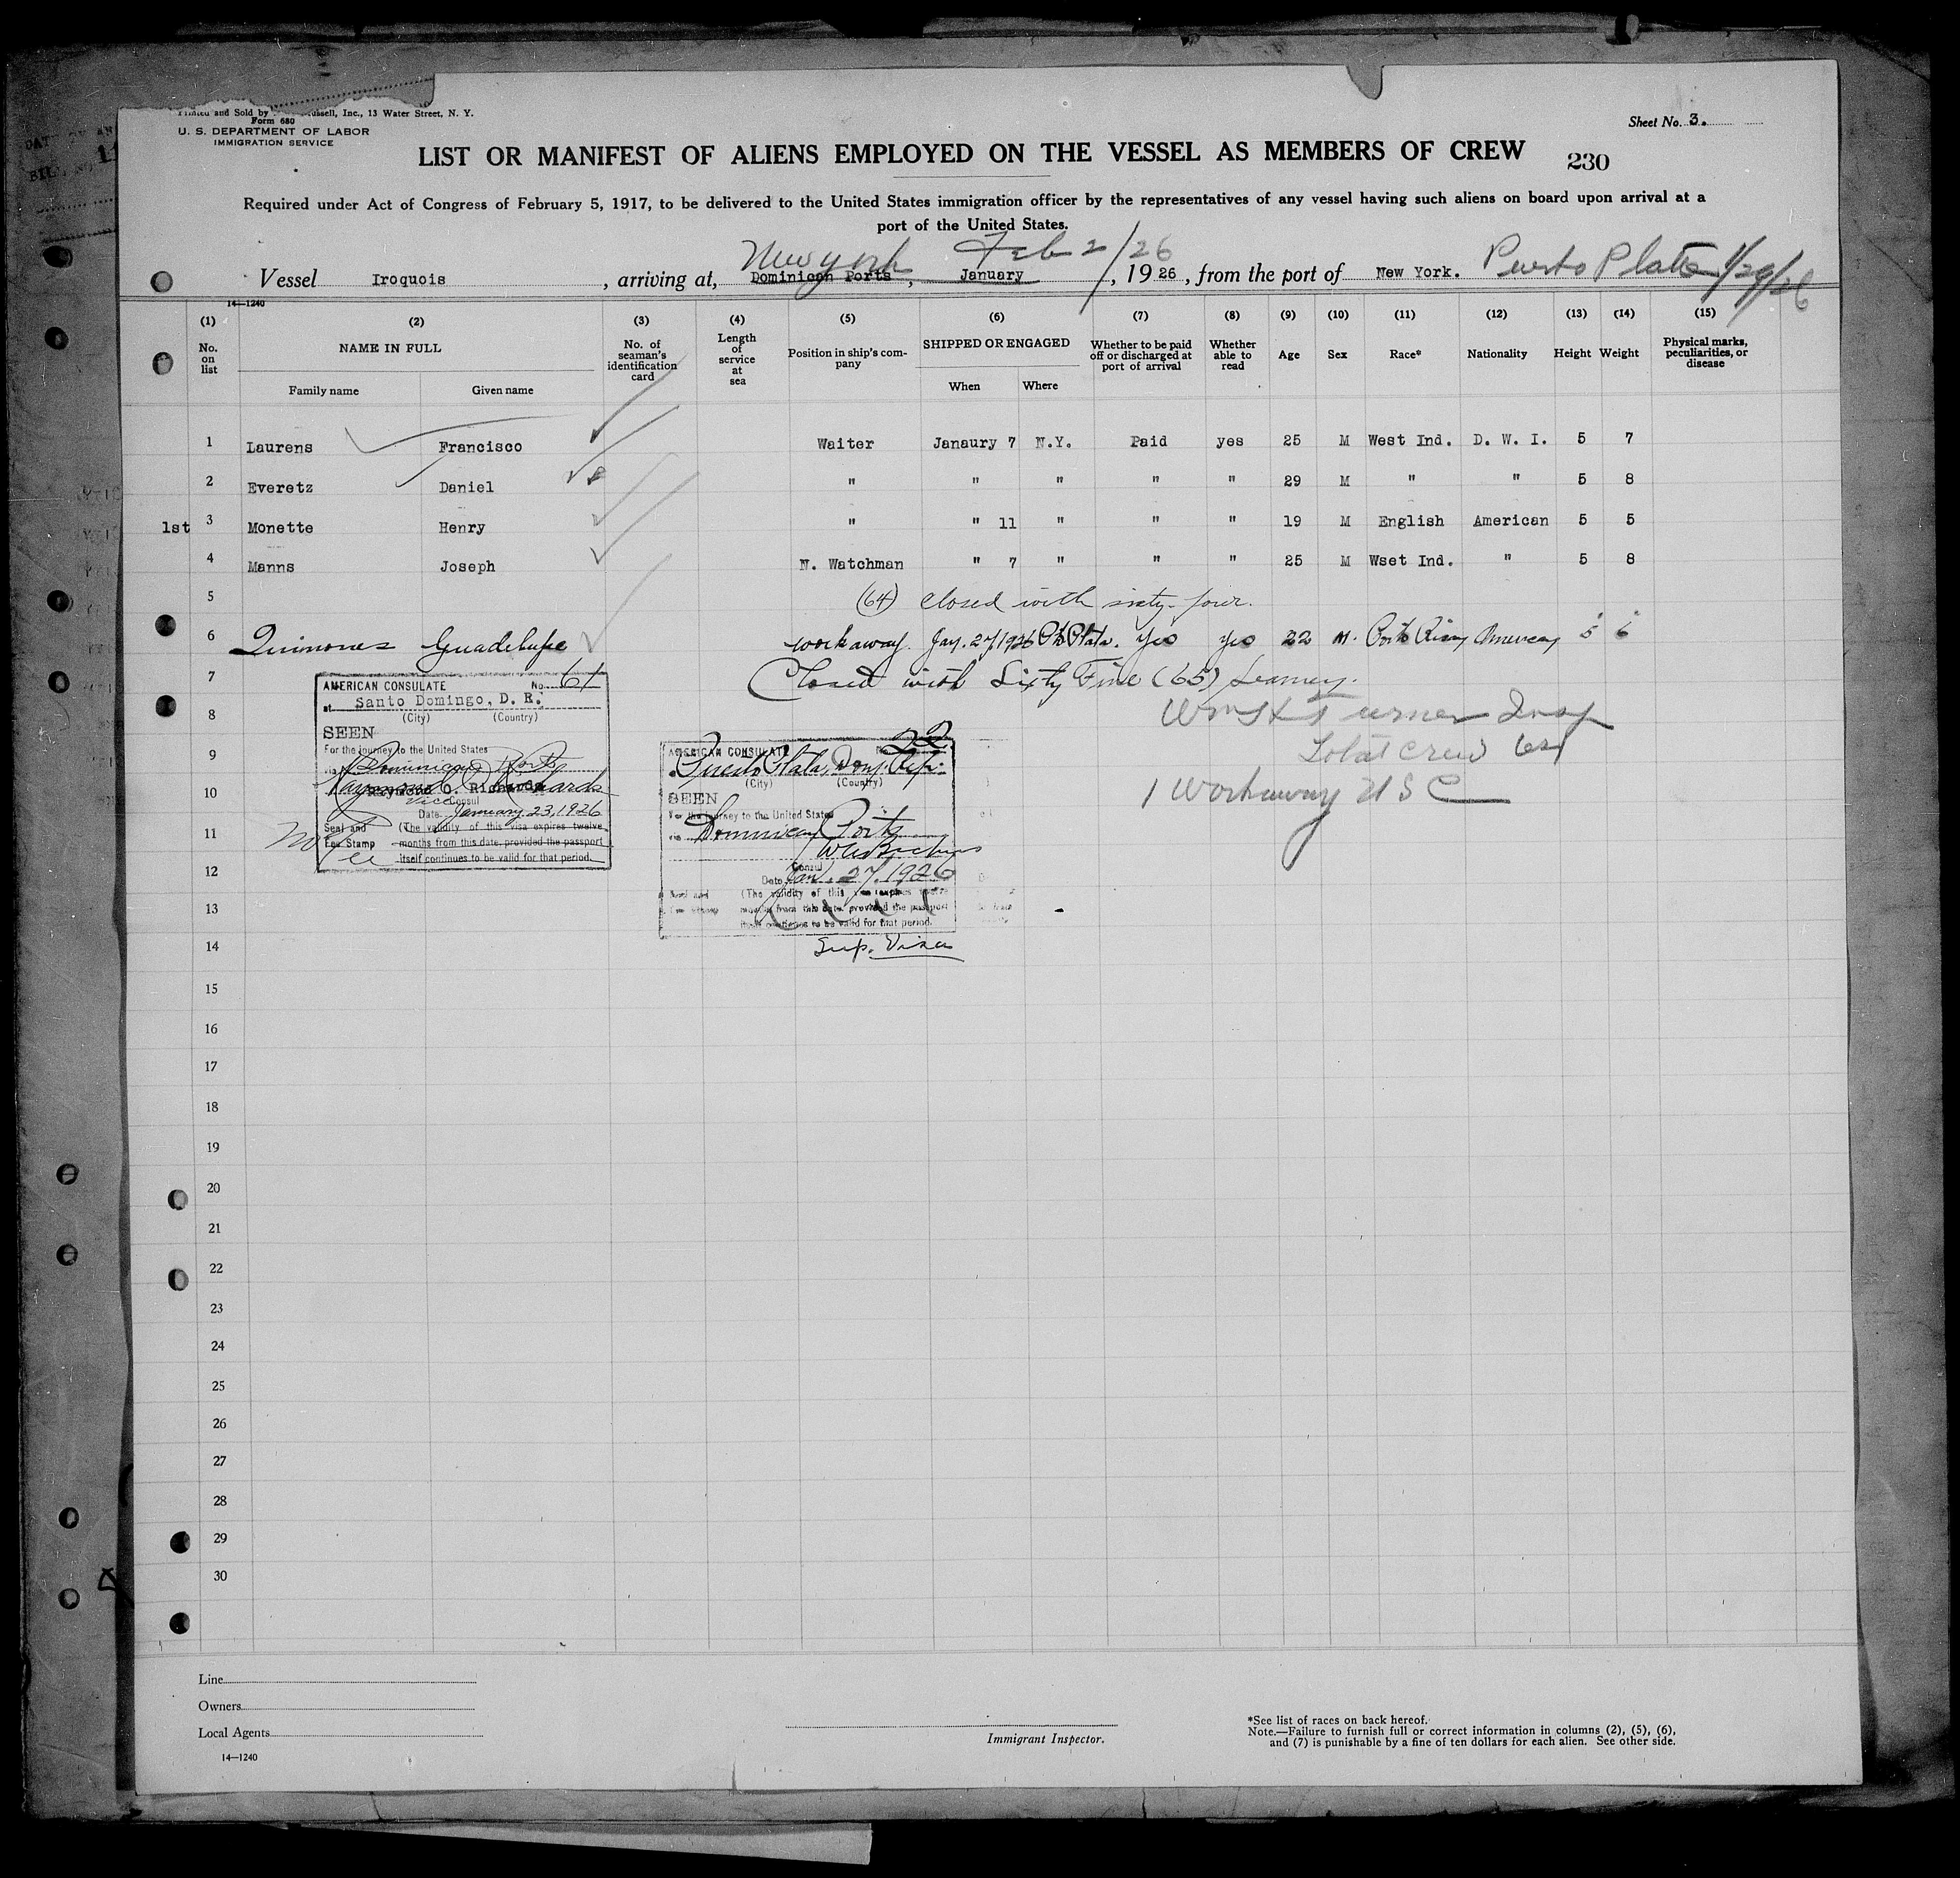 Printed and Sold by Russell, Inc., 13 Water Street, N. Y.
Form 680
U. S. DEPARTMENT OF LABOR
IMMIGRATION SERVICE
Sheet No. 3.
LIST OR MANIFEST OF ALIENS EMPLOYED ON THE VESSEL AS MEMBERS OF CREW
230
Required under Act of Congress of February 5, 1917, to be delivered to the United States immigration officer by the representatives of any vessel having such aliens on board upon arrival at a
port of the United States.
New York Feb 2/26 Puerto Plata 1/29/26
Vessel Iroquois, arriving at, Dominican Ports, January, 1926, from the port of New York.
14—1240
(1) (2) (3) (4) (5) (6) (7) (8) (9) (10) (11) (12) (13) (14) (15)
No. on list NAME IN FULL No. of seaman's identification card Length of service at sea Position in ship's company SHIPPED OR ENGAGED Whether to be paid off or discharged at port of arrival Whether able to read Age Sex Race* Nationality Height Weight Physical marks, peculiarities, or disease
Family name Given name When Where
1 Laurens Francisco Waiter Janaury 7 N.Y. Paid yes 25 M West Ind. D. W. I. 5 7
2 Everetz Daniel " " " " " 29 M " " 5 8
1st 3 Monette Henry " " 11 " " " 19 M English American 5 5
4 Manns Joseph N. Watchman " 7 " " " 25 M Wset Ind. " 5 8
5 (64) Closed with sixty-four.
6 Quinones Guadelupe workaway. Jan. 27/1926 Pto Plata. Yes yes 22 M. Porto Rican American 5 6
7 Closed with Sixty Five (65) Seamen.
8 Wm H Turner Insp
9 Total crew 64
10 1 Workaway U S C
11
12
13
14
15
16
17
18
19
20
21
22
23
24
25
26
27
28
29
30
AMERICAN CONSULATE No. 61
at Santo Domingo, D. R.
(City) (Country)
SEEN
For the journey to the United States
via Dominican Ports
Raymond O. Richards
Vice Consul
Date January 23, 1926
Seal and Fee Stamp
(The validity of this visa expires twelve
months from this date, provided the passport
itself continues to be valid for that period.
No Fee
AMERICAN CONSULATE 22
Puerto Plata, Dom. Rep.
(City) (Country)
SEEN
For the journey to the United States
via Dominican Ports
Consul
Date Jan. 27. 1926
(The validity of this visa expires twelve
months from this date provided the passport
itself continues to be valid for that period.
Sup. Visa
Line
Owners
Local Agents
14—1240
Immigrant Inspector.
*See list of races on back hereof.
Note.—Failure to furnish full or correct information in columns (2), (5), (6),
and (7) is punishable by a fine of ten dollars for each alien. See other side.